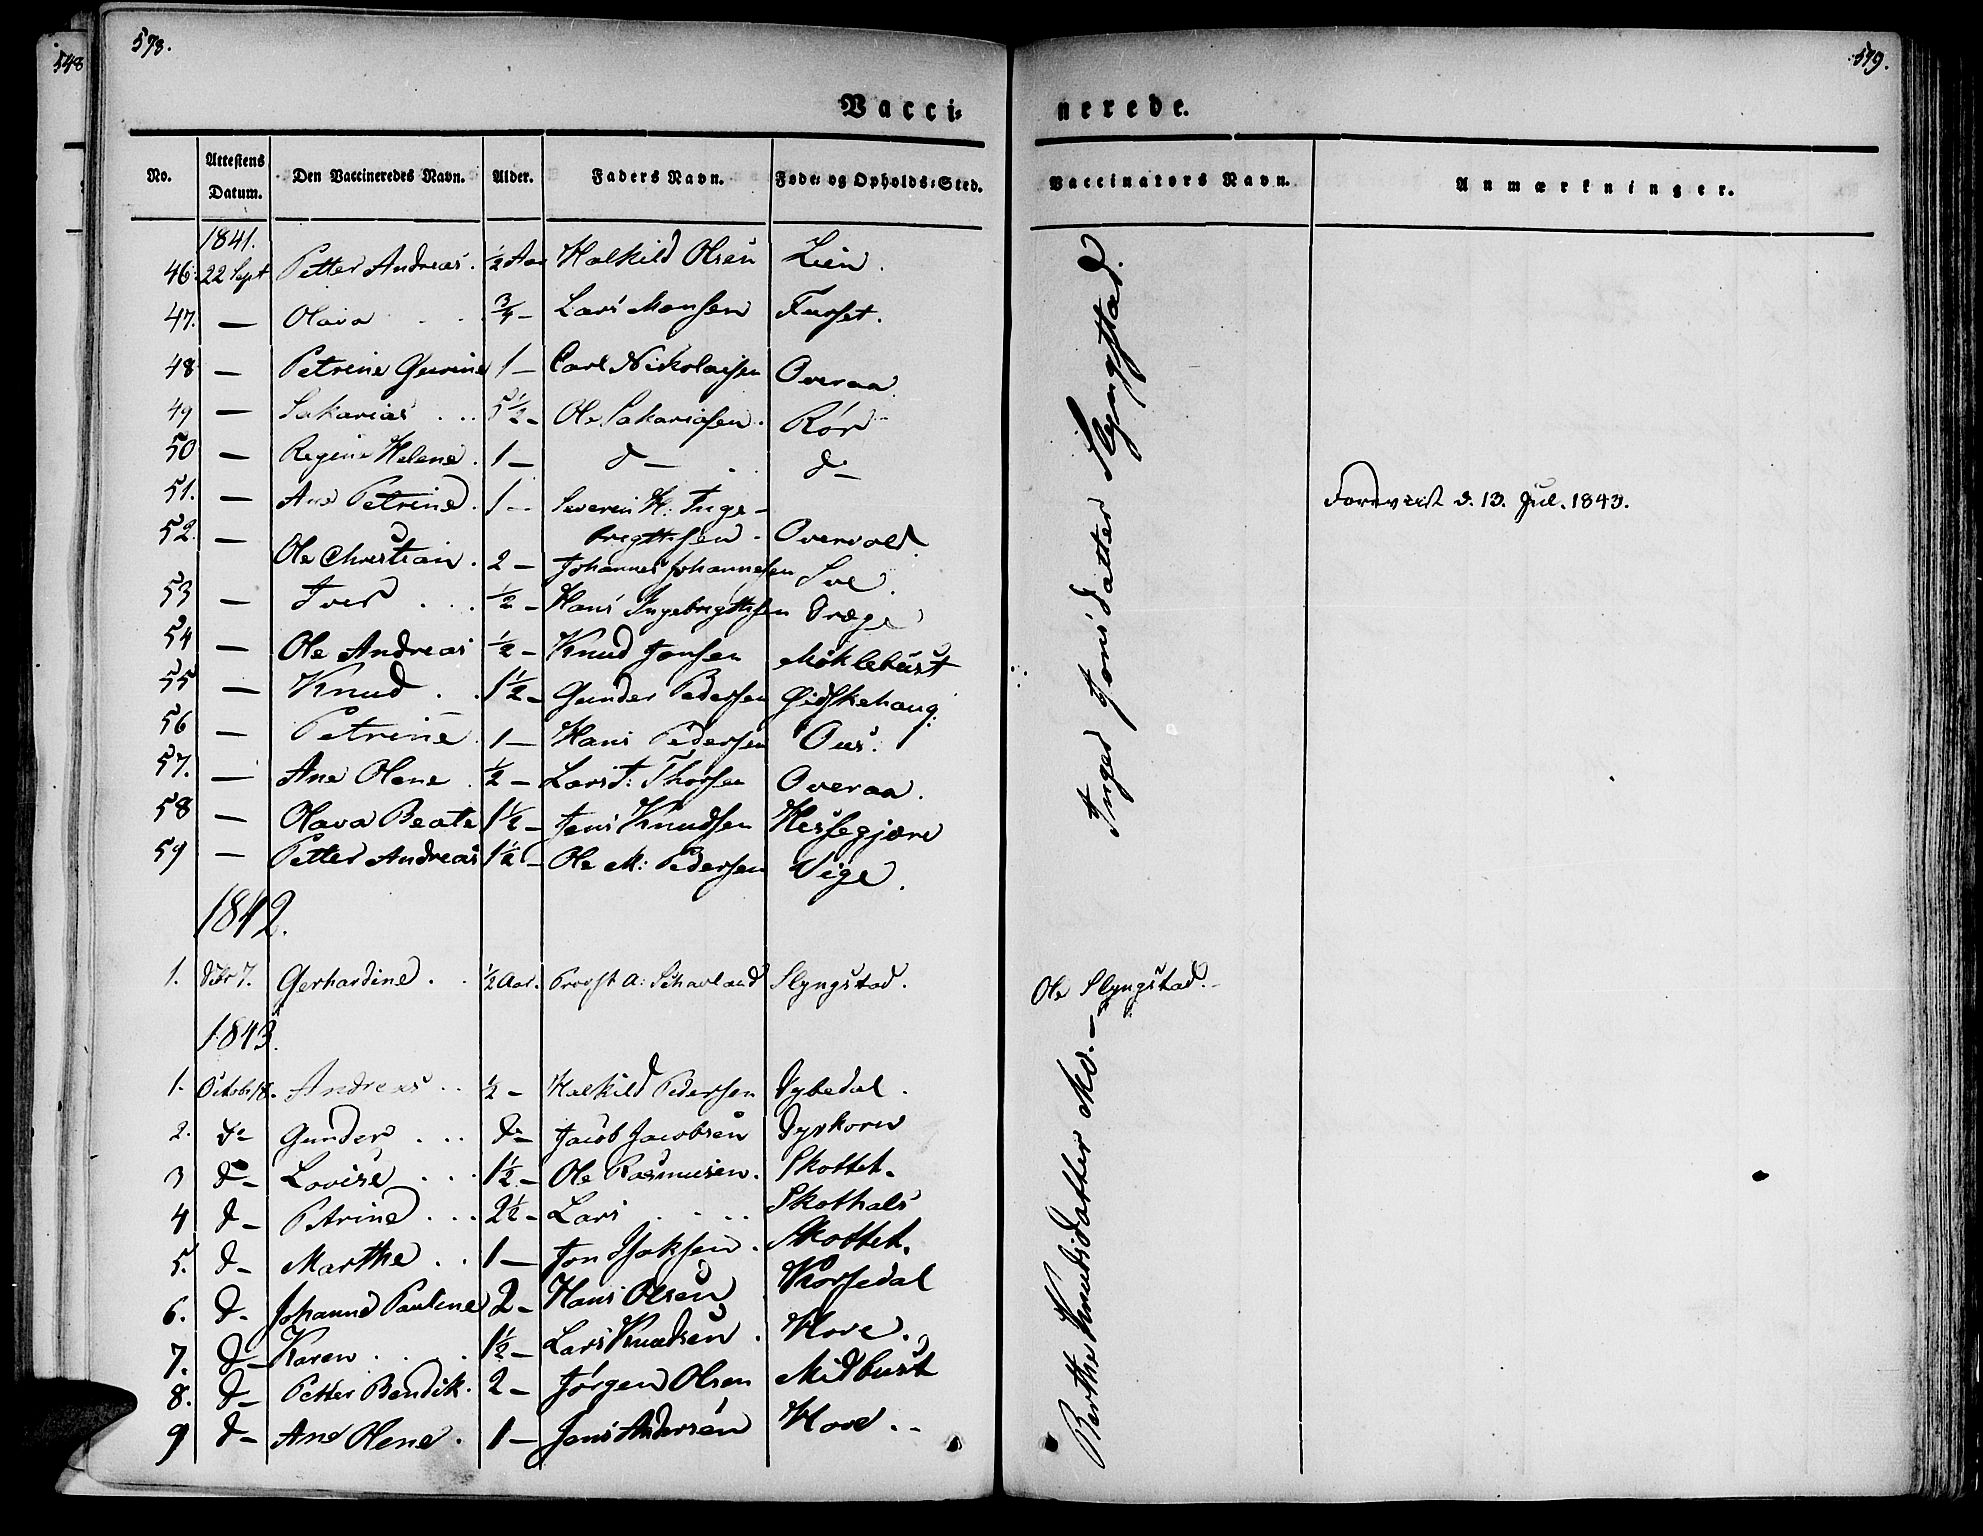 548
578.
579.
Vacci-
nerede.
No.
Attestens Datum.
Den Vaccineredes Navn.
Alder.
Faders Navn.
Føde- og Opholds-Sted.
Vaccinators Navn.
Anmærkninger.
1841.
46. 22 Sept Petter Andreas. ½ Aar Halkild Olsen Lien.
47. — Olava . . ¾ — Lars Monsen Furset.
48 — Petrine Gurine 1 — Carl Nickolaisen Overaa
49 — Sakarias . . . 5½ — Ole Sakariasen. Rør
50 — Regine Helene. 1 — d — . . d —
51. — Ane Petrine. 1 — Severin K: Inge-
bregtsen - Overvold.
52. — Ole Christian. 2 — Johannes Johannesen Sve.
53 — Iver . . . ½ — Hans Ingebregtsen Dræge
54 — Ole Andreas ½ — Knud Jonsen Møklebust
55 — Knud . . . 1½ — Gunder Pedersen Gidskehaug.
56 — Petrine . 1 — Hans Pedersen Ous.
57. — Ane Olene . ½ — Lars T: Thorsen Overaa.
58 — Olava Beate 1½ — Jens Knudsen Hessegjære
59 — Petter Andreas 1½ — Ole M: Pedersen Vige.
Inger Jonsdatter Slyngstad.
Foreviist d. 13. Jul. 1843.
1842.
1. 7. Gerhardine . . ½ Aar. Provst A: Schavland Slyngstad.
Ole Slyngstad. -
1843.
1. Octobr 18. Andreas . . ½ — Halkild Pedersen Dybedal.
2. d — Gunder . . . d — Jacob Jacobsen Dyrkorn
3 d — Lovise . . . 1½ — Ole Rasmusen. Skottet.
4 d — Petrine . . . 2½ — Lars . . . . Skothals
5. d — Marthe . . 1 — Jon Isaksen. Skottet.
6. d — Johanne Pauline 2 — Hans Olsen Korsedal
7. d — Karen . . . 1½ — Lars Knudsen . Hove.
8. d — Petter Bendik. 2 — Jørgen Olsen Midbust
9 d — Ane Olene . 1 — Jens Andersen Hove . .
Berthe Knudsdatter Mo. —